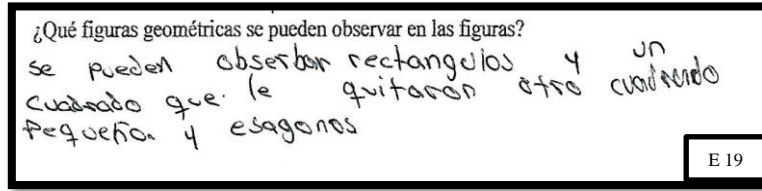 ¿Qué figuras geométricas se pueden observar en las figuras?
se pueden obserbar rectangulos y un
cuadrado que le quitaron otro cuadrado
pequeño y esagonos
E 19